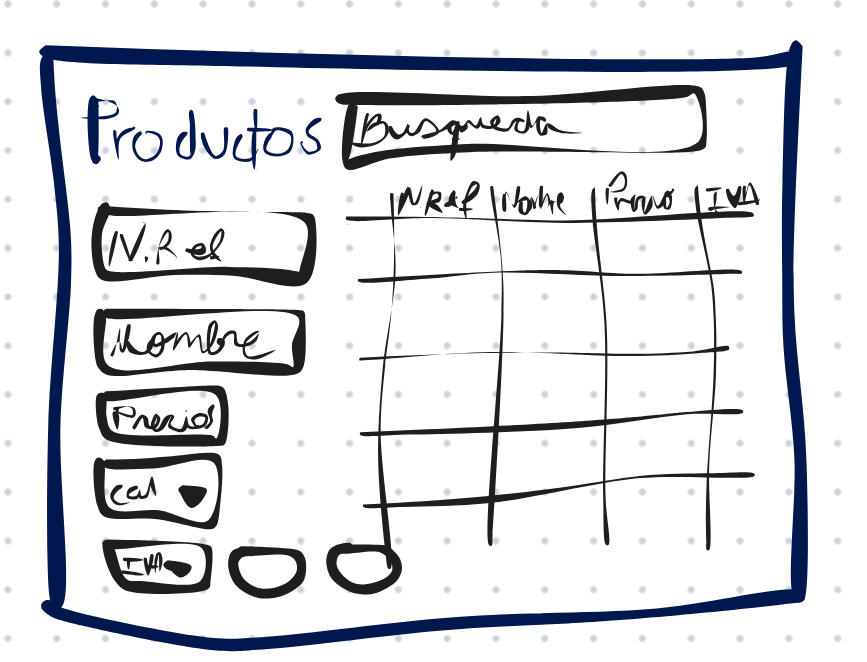 Productos
Busqueda
N.Ref
Nombre
Precio
Cat
IVA
NRef Nombre Precio IVA